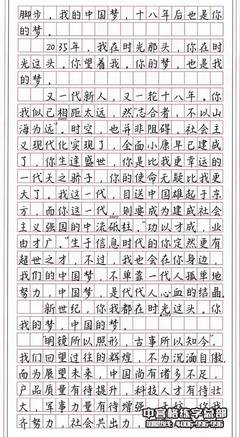 脚步，我的中国梦，十八年后也是你
的梦。
2035年，我在时光那头，你在时
光这头。你望着我，你的梦，也是我
的梦。
又一代新人，又一轮十八年。你
我似已相距太远，然"志合者，不以山
海为远"。时空，也并非阻碍，社会主
义现代化实现了，全面小康早已建成
了，你生逢盛世，你是比我更幸运的
一代天之骄子，你的使命无疑比我更
大了。我这一代，目送中国雄起于东
方，而你这一代，则要成为建成社会
主义强国的中流砥柱，"功以才成，业
由才广。"生于信息时代的你定然更有
超世之才，不过，我也会在你身边，
我们的中国梦，不单靠一代人孤单地
努力，中国梦，是代代人心血的结晶。
新世纪，你我都在时光这头。你
我的梦，中国的梦。
"明镜所以照形，古事所以知今"，
我们回望过往的辉煌，不为沉湎自傲，
而为展望未来，中国尚有诸多不足，
户品质量有待提升，科技人才有待壮
大，军事力量有待增强
齐努力，社会共出力，
中宫格练字总部
400-